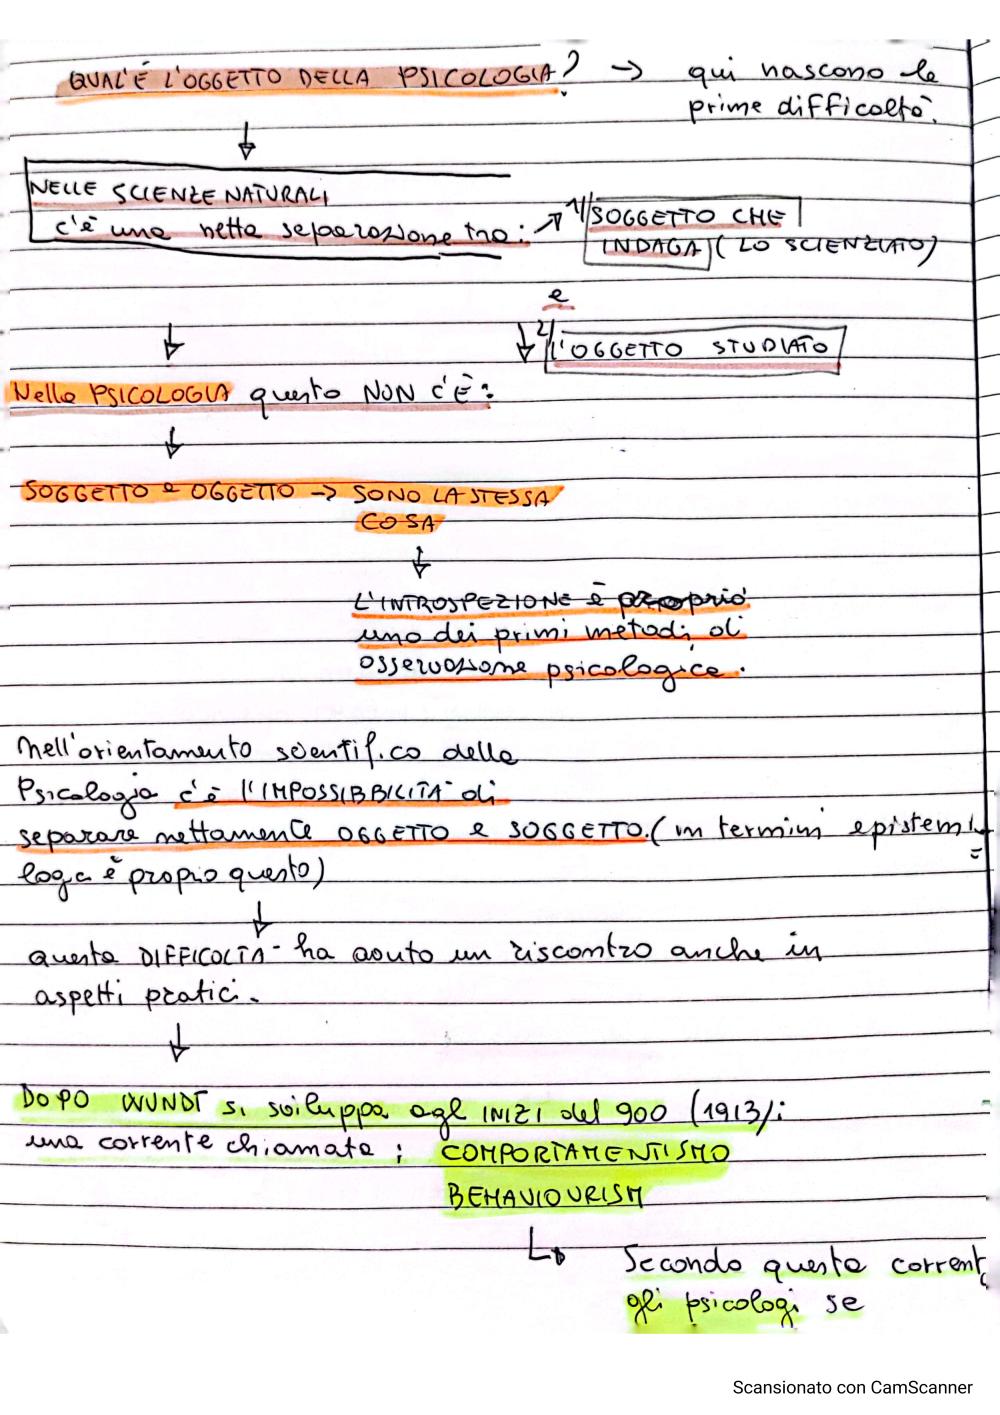 QUAL'É L'OGGETTO DELLA PSICOLOGIA? → qui nascono le
prime difficoltà.
↓
NELLE SCIENZE NATURALI
c'è una netta separazione tra: ↗ 1/ SOGGETTO CHE
INDAGA (LO SCIENZIATO)
e
↓ ↓ 2/ L'OGGETTO STUDIATO
Nella PSICOLOGIA questo NON C'È:
↓
SOGGETTO e OGGETTO → SONO LA STESSA
COSA
↓
L'INTROSPEZIONE è proprio
uno dei primi metodi di
osservazione psicologica.
Nell'orientamento scientifico della
Psicologia c'è l'IMPOSSIBBILITÀ di
separare nettamente OGGETTO e SOGGETTO. (in termini epistemi
loga è proprio questo)
↓
questa DIFFICOLTÀ - ha avuto un riscontro anche in
aspetti pratici.
↓
DOPO WUNDT si sviluppa agl INIZI del 900 (1913/:
una corrente chiamata: COMPORTAMENTISMO
BEHAVIOURISM
↳ Secondo questa corrente
gli psicologi se
Scansionato con CamScanner